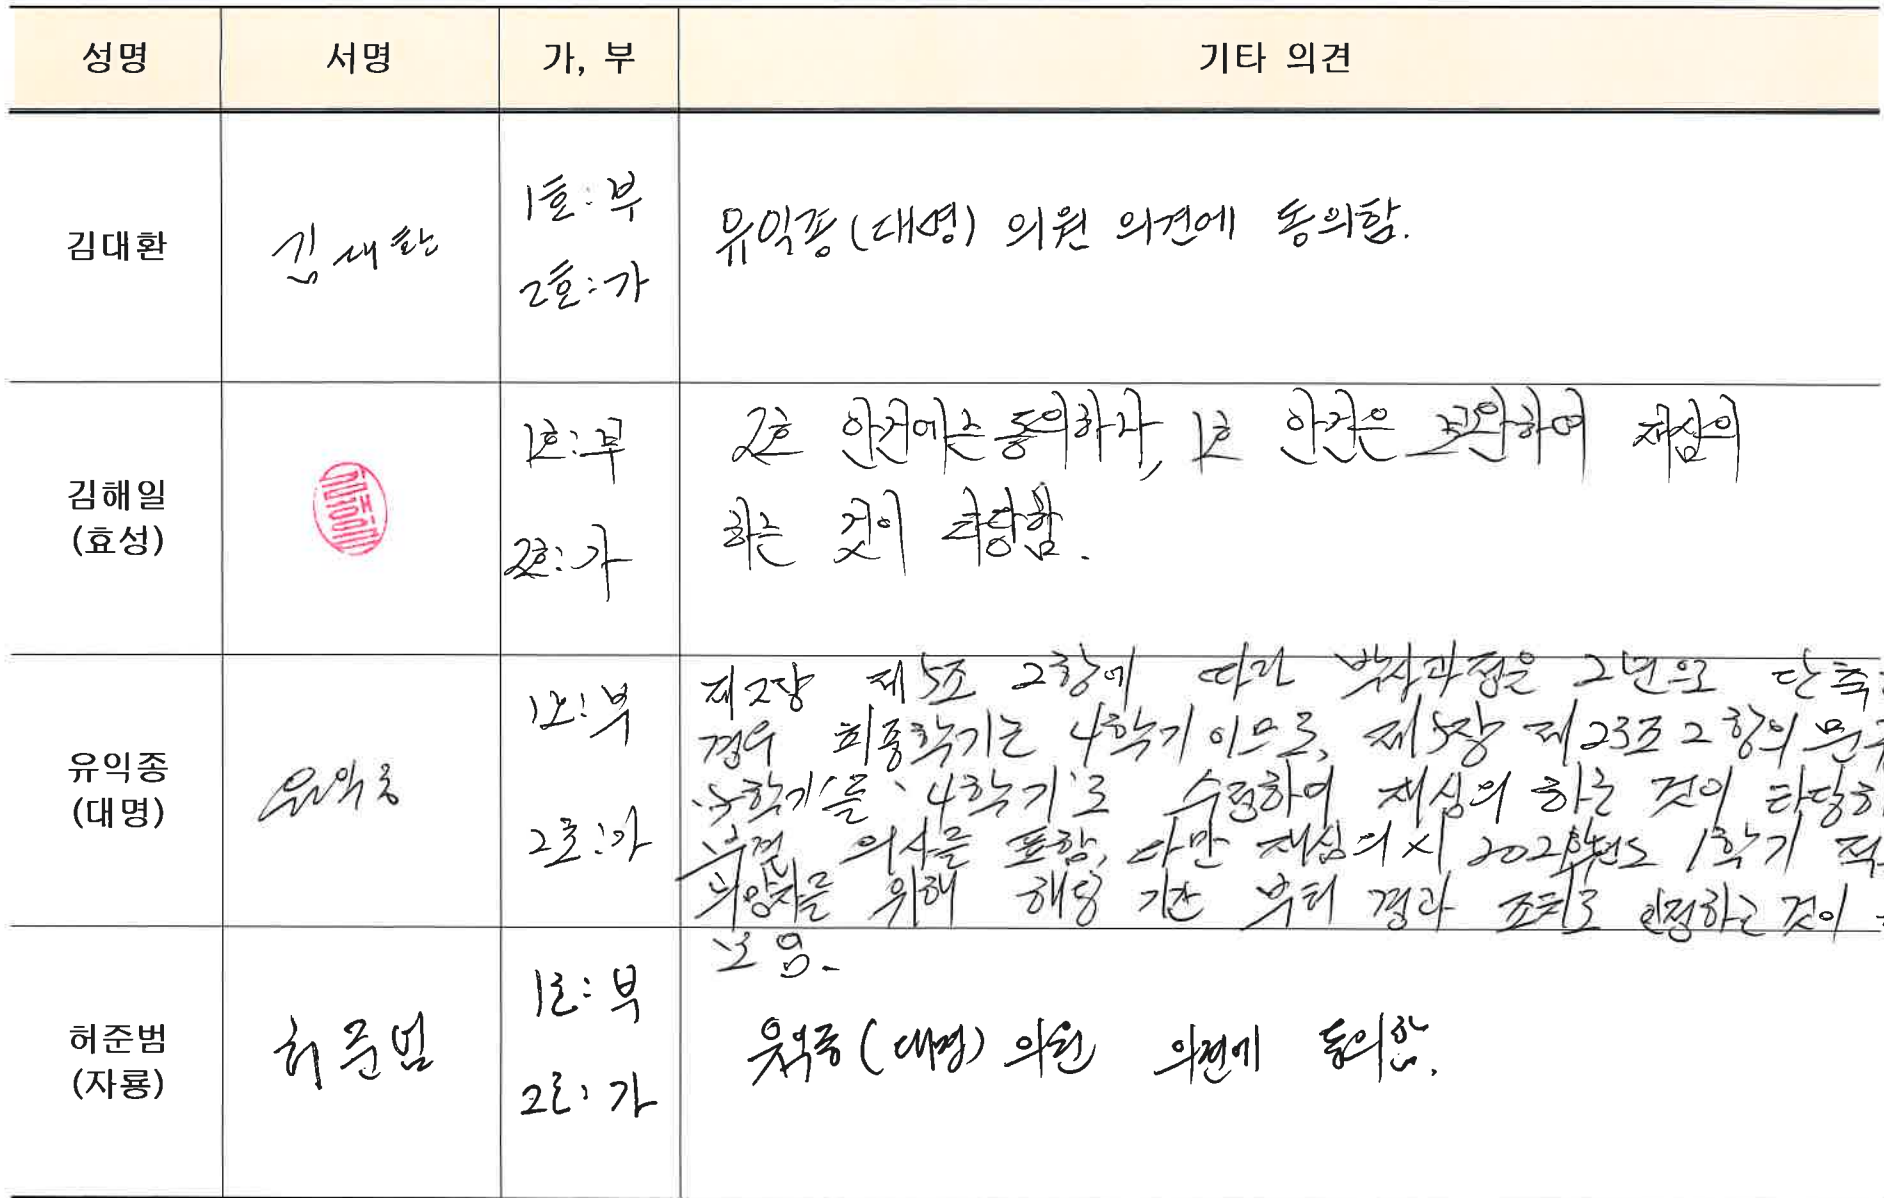 성명 서명 가, 부 기타 의견
김대환 김대환 1호: 부 유익종(대명) 의원 의견에 동의함.
2호: 가
김해일 1호: 부 2호 안건에는 동의하나, 1호 안건은 보완하여 재심의
(효성) 2호: 가 하는 것이 타당함.
유익종 유익종 1호: 부 제2장 제5조 2항에 따라 박사과정을 2년으로 단축
(대명) 2호: 가 경우 최종학기는 4학기 이므로, 제5장 제23조 2항의 문구
학기'를 '4학기'로 수정하여 재심의 하는 것이 타당하
부결 의사를 표함. 다만 재심의 시 학년도 1학기 적
희망자를 위해 해당 기간 부터 경과 조치로 인정하는 것이
보임.
허준범 허준범 1호: 부 유익종(대명) 의원 의견에 동의함.
(자룡) 2호: 가